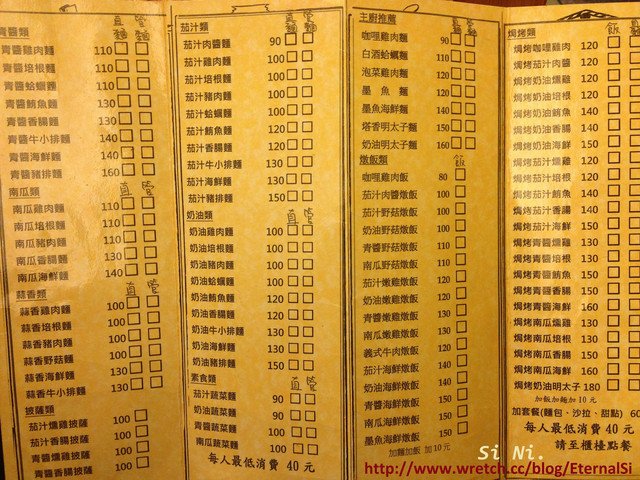 青醬類 直麵 管麵
青醬雞肉麵 110
青醬培根麵 110
青醬蛤蠣麵 110
青醬鮪魚麵 130
青醬香腸麵 130
青醬牛小排麵 140
青醬海鮮麵 140
青醬豬排麵 160
南瓜類 直 管
南瓜雞肉麵 110
南瓜培根麵 110
南瓜豬肉麵 110
南瓜香腸麵 130
南瓜海鮮麵 140
蒜香類 直 管
蒜香雞肉麵 100
蒜香培根麵 100
蒜香豬肉麵 100
蒜香野菇麵 100
蒜香海鮮麵 130
蒜香牛小排麵 130
披薩類
茄汁燻雞披薩 100
茄汁香腸披薩 100
青醬燻雞披薩 100
青醬香腸披薩 100
茄汁類 直麵 管麵
茄汁肉醬麵 90
茄汁雞肉麵 100
茄汁培根麵 100
茄汁豬肉麵 100
茄汁蛤蠣麵 100
茄汁鮪魚麵 120
茄汁香腸麵 120
茄汁牛小排麵 130
茄汁海鮮麵 130
茄汁豬排麵 150
奶油類 直 管
奶油雞肉麵 100
奶油培根麵 100
奶油豬肉麵 100
奶油蛤蠣麵 100
奶油鮪魚麵 120
奶油香腸麵 120
奶油牛小排麵 130
奶油海鮮麵 130
奶油豬排麵 150
素食類 直 管
茄汁蔬菜麵 90
奶油蔬菜麵 90
青醬蔬菜麵 100
南瓜蔬菜麵 100
每人最低消費 40 元
主廚推薦 直麵 管麵
咖哩雞肉麵 90
白酒蛤蠣麵 110
泡菜雞肉麵 110
墨魚麵 120
墨魚海鮮麵 140
塔香明太子麵 150
奶油明太子麵 160
燉飯類 飯
咖哩雞肉飯 80
茄汁肉醬燉飯 100
茄汁野菇燉飯 100
奶油野菇燉飯 100
青醬野菇燉飯 110
南瓜野菇燉飯 110
茄汁嫩雞燉飯 120
奶油嫩雞燉飯 120
青醬嫩雞燉飯 130
南瓜嫩雞燉飯 130
義式牛肉燉飯 120
茄汁海鮮燉飯 140
奶油海鮮燉飯 140
青醬海鮮燉飯 150
南瓜海鮮燉飯 150
墨魚海鮮燉飯 150
加麵加飯 加10元
焗烤類 飯 麵
焗烤咖哩雞肉 120
焗烤茄汁肉醬 120
焗烤奶油燻雞 120
焗烤奶油培根 120
焗烤奶油鮪魚 140
焗烤奶油香腸 140
焗烤奶油海鮮 150
焗烤茄汁燻雞 120
焗烤茄汁培根 120
焗烤茄汁鮪魚 140
焗烤茄汁香腸 140
焗烤茄汁海鮮 150
焗烤青醬燻雞 130
焗烤青醬培根 130
焗烤青醬鮪魚 150
焗烤青醬香腸 150
焗烤青醬海鮮 160
焗烤南瓜燻雞 130
焗烤南瓜培根 130
焗烤南瓜香腸 150
焗烤南瓜海鮮 160
焗烤奶油明太子 180
加飯加麵加10元
加套餐(麵包、沙拉、甜點) 60
每人最低消費 40
請至櫃檯點餐
Si Ni.
http://www.wretch.cc/blog/EternalSi